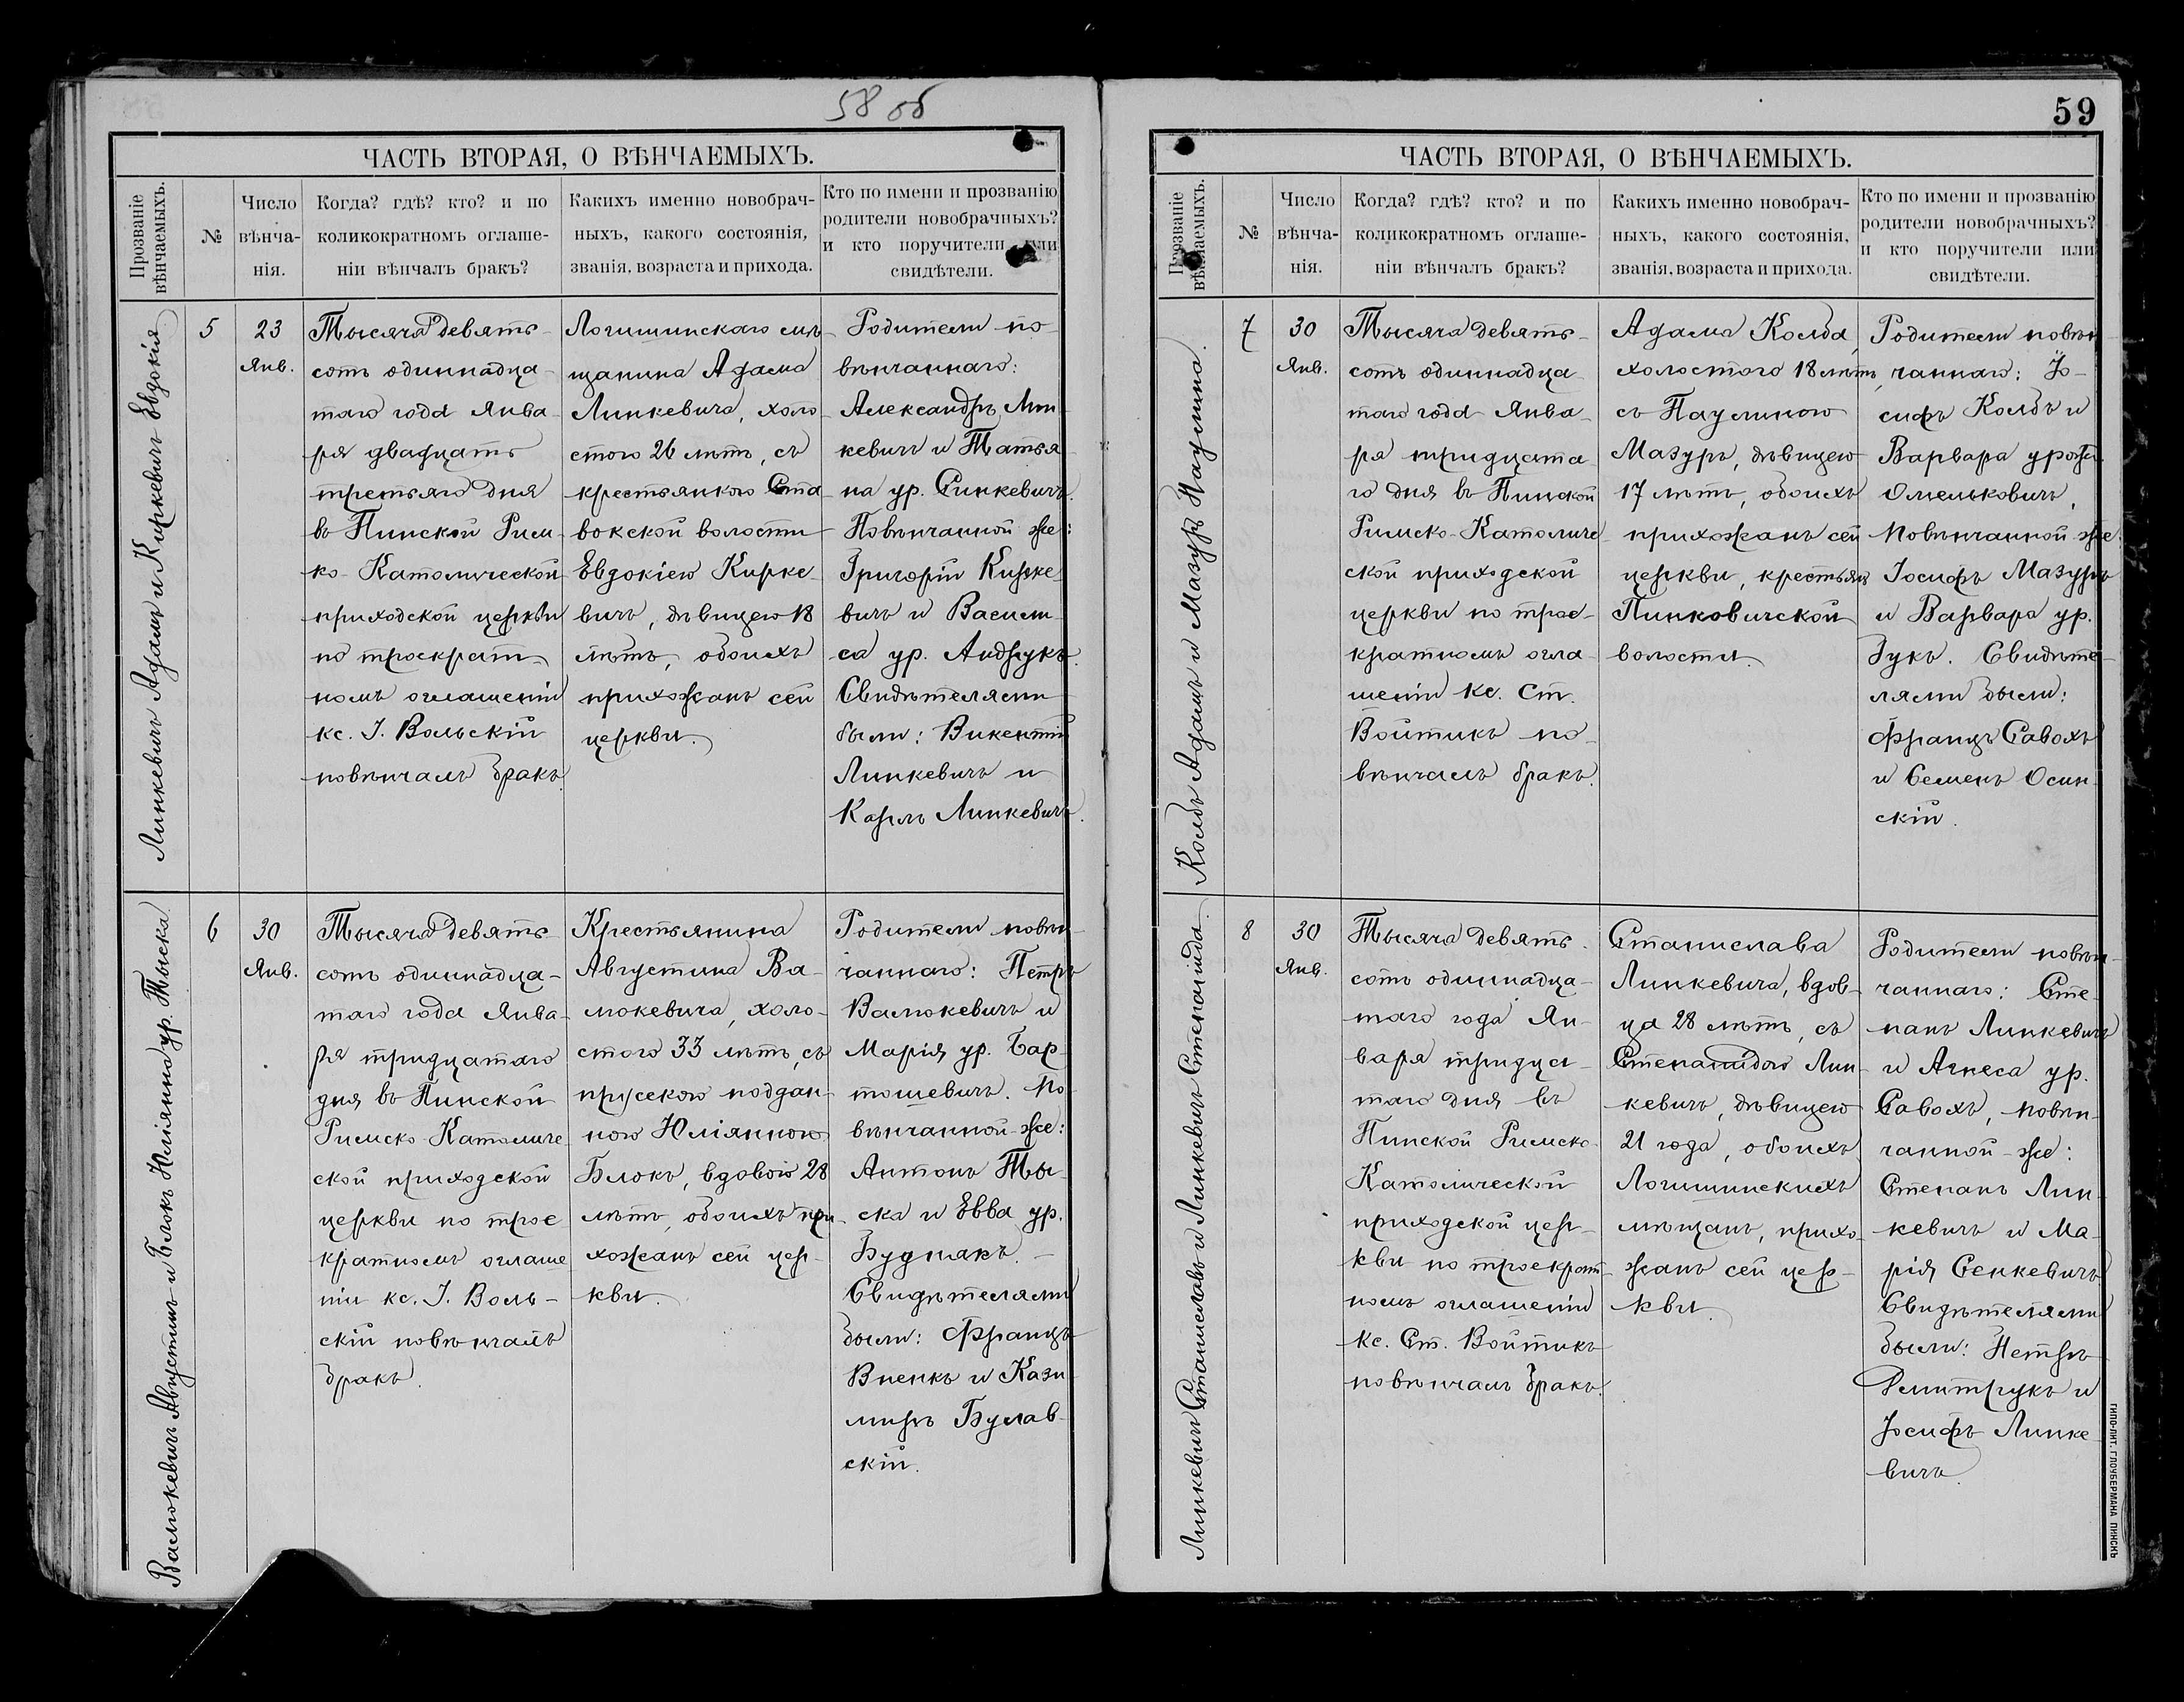 58 об
ЧАСТЬ ВТОРАЯ, О ВѢНЧАЕМЫХЪ.
Прозваніе
вѣнчаемыхъ.
№
Число
вѣнча-
нія.
Когда? гдѣ? кто? и по
коликократномъ оглаше-
ніи вѣнчалъ бракъ?
Какихъ именно новобрач-
ныхъ, какого состоянія,
званія, возраста и прихода.
Кто по имени и прозванію
родители новобрачныхъ?
и кто поручители или
свидѣтели.
Линкевичъ Адамъ и Киркевичъ Евдокія
5
23
Янв.
Тысяча девять-
сотъ одиннадца-
таго года Янва-
ря двадцать
третьяго дня
въ Пинской Рим-
ко-Католической
приходской церкви
по троекрат-
номъ оглашеніи
кс. І. Вольскій
повѣнчалъ бракъ.
Логишинскаго мѣ-
щанина Адама
Линкевича, холо-
стого 26 лѣтъ, съ
крестьянкою Ста-
вокской волости
Евдокіею Кирке-
вичъ, дѣвицею 18
лѣтъ, обоихъ
прихожанъ сей
церкви.
Родители по-
вѣнчаннаго:
Александръ Лин-
кевичъ и Татья-
на ур. Синкевичъ.
Повѣнчанной же:
Григорій Кирке-
вичъ и Васили-
са ур. Андрукъ.
Свидѣтелями
были: Викентій
Линкевичъ и
Карлъ Линкевичъ.
Валюкевичъ Августинъ и Блокъ Юліянна ур. Тыска.
6
30
Янв.
Тысяча девять-
сотъ одиннадца-
таго года Янва-
ря тридцатаго
дня въ Пинской
Римско-Католиче-
ской приходской
церкви по трое
кратномъ оглаше
ніи кс. І. Воль-
скій повѣнчалъ
бракъ.
Крестьянина
Августина Ва-
люкевича, холо-
стого 33 лѣтъ, съ
прусскою поддан-
ною Юліянною
Блокъ, вдовою 28
лѣтъ, обоихъ при-
хожанъ сей цер-
кви.
Родители повѣн-
чаннаго: Петръ
Валюкевичъ и
Марія ур. Бар-
тошевичъ. По-
вѣнчанной-же:
Антонъ Ты-
ска и Евва ур.
Буднякъ. -
Свидѣтелями
были: Францъ
Вненкъ и Кази-
миръ Булав-
скій.
59
ЧАСТЬ ВТОРАЯ, О ВѢНЧАЕМЫХЪ.
Прозваніе
вѣнчаемыхъ.
№
Число
вѣнча-
нія.
Когда? гдѣ? кто? и по
коликократномъ оглаше-
ніи вѣнчалъ бракъ?
Какихъ именно новобрач-
ныхъ, какого состоянія,
званія, возраста и прихода.
Кто по имени и прозванію
родители новобрачныхъ?
и кто поручители или
свидѣтели.
Колбъ Адамъ и Мазуръ Паулина.
7
30
Янв.
Тысяча девять-
сотъ одиннадца-
таго года Янва-
ря тридцата-
го дня въ Пинской
Римско-Католиче-
ской приходской
церкви по трое-
кратномъ огла-
шеніи кс. Ст.
Войтикъ по-
вѣнчалъ бракъ.
Адама Колба,
холостого 18 лѣтъ,
съ Паулиною
Мазуръ, дѣвицею
17 лѣтъ, обоихъ
прихожанъ сей
церкви, крестьянъ
Пинковичской
волости.
Родители повѣн-
чаннаго: Іо-
сифъ Колбъ и
Варвара урожд.
Омельковичъ,
Повѣнчанной-же:
Іосифъ Мазуръ
и Варвара ур.
Гукъ. Свидѣте-
лями были:
Францъ Савохъ
и Семенъ Осин-
скій.
Линкевичъ Станиславъ и Линкевичъ Степанида.
8
30
Янв.
Тысяча девять-
сотъ одиннадца-
таго года Ян-
варя тридца-
таго дня въ
Пинской Римско-
Католической
приходской цер-
кви по троекрат-
номъ оглашеніи
кс. Ст. Войтикъ
повѣнчалъ бракъ.
Станислава
Линкевича, вдов-
ца 28 лѣтъ, съ
Степанидою Лин-
кевичъ, дѣвицею
21 года, обоихъ
Логишинскихъ
мѣщанъ, прихо-
жанъ сей цер-
кви.
Родители повѣн-
чаннаго: Сте-
панъ Линкевичъ
и Агнеса ур.
Савохъ, повѣн-
чанной-же:
Степанъ Лин-
кевичъ и Ма-
рія Сенкевичъ.
Свидѣтелями
были: Петръ
Дмитрукъ и
Іосифъ Линке-
вичъ.
ТИПО-ЛИТ. ГЛОУБЕРМАНА ПИНСКЪ